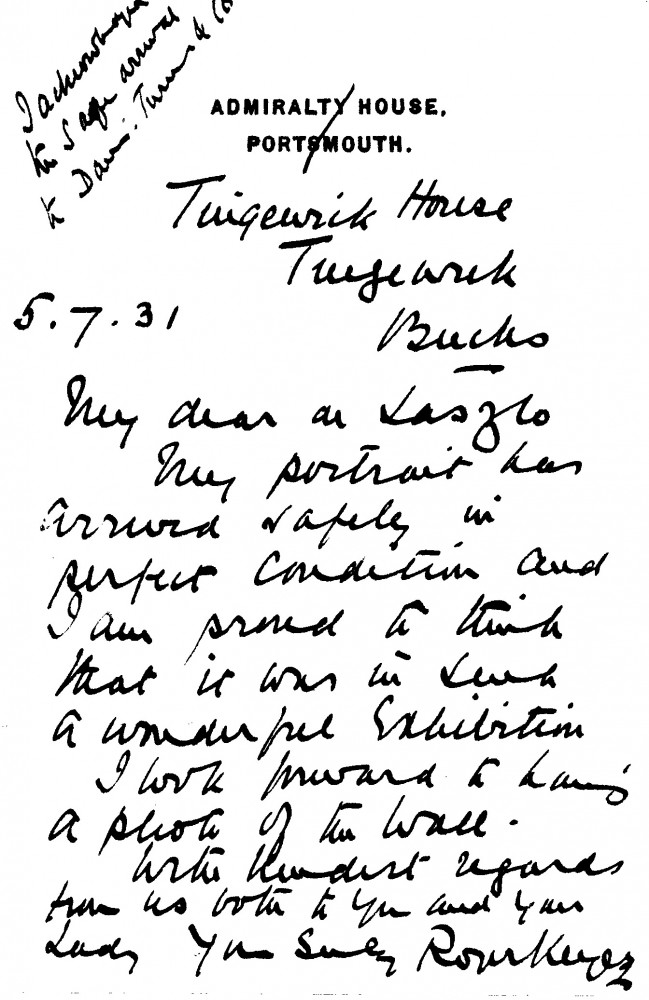 I acknowledged
the safe arrival
to Davis. Turner & Co
ADMIRALTY HOUSE,
PORTSMOUTH.
Tingewick House
Tingewick
Bucks
5.7.31
My dear de Laszlo
My portrait has
arrived safely in
perfect condition and
I am proud to think
that it was in such
a wonderful Exhibition
I look forward to having
a photo of the wall.
With kindest regards
from us both to you and your
Lady Yours Sincerely Roger Keyes